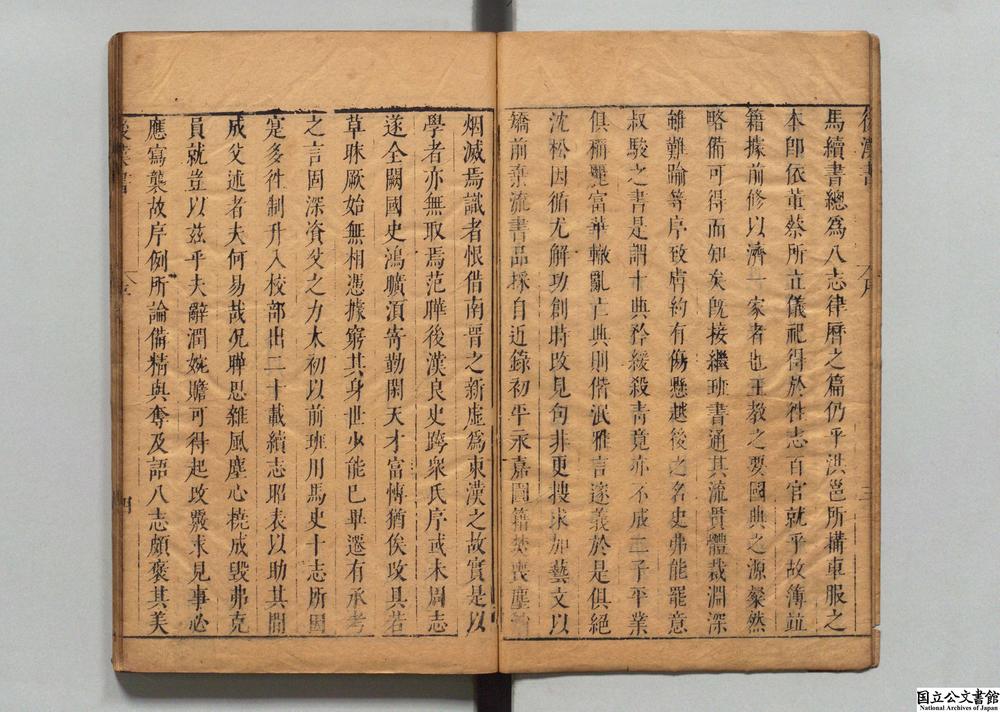 馬續書總爲八志律曆之篇仍乎洪邕所構車服之
本卽依董蔡所立儀祀得於徃志百官就乎故簿並
籍據前修以濟一家者也王教之要國典之源粲然
略備可得而知矣旣接繼班書通其流貫體裁淵深
雖難踰等序致膚約有傷懸越後之名史弗能罷意
叔駿之書是謂十典矜緩殺青竟亦不成二子平業
俱稱麗富華轍亂亡典則偕泯雅言邃義於是俱絕
沈松因循尤解功創時改見句非更搜求加藝文以
矯前棄流書品採自近錄初平永嘉圖籍焚喪塵
烟滅焉識者恨借南晉之新虛爲東漢之故實是以
學者亦無取焉范曄後漢良史跨衆氏序或未周志
遂全闕國史鴻曠湏寄勤閑天才富博猶俟攺具若
草昧厥始無相憑據窮其身世少能已畢遷有承考
之言固深資父之力太初以前班用馬史十志所因
寔多徃制升入校部出二十載續志昭表以助其間
成父述者夫何易哉况曄思雜風塵心橈成毀弗克
員就豈以兹乎夫辭潤婉贍可得起攺覈求見事必
應寫襲故序例所論備精與奪及語八志頗褒其美
後漢書
序
後漢書
序
四
国立公文書館
National Archives of Japan